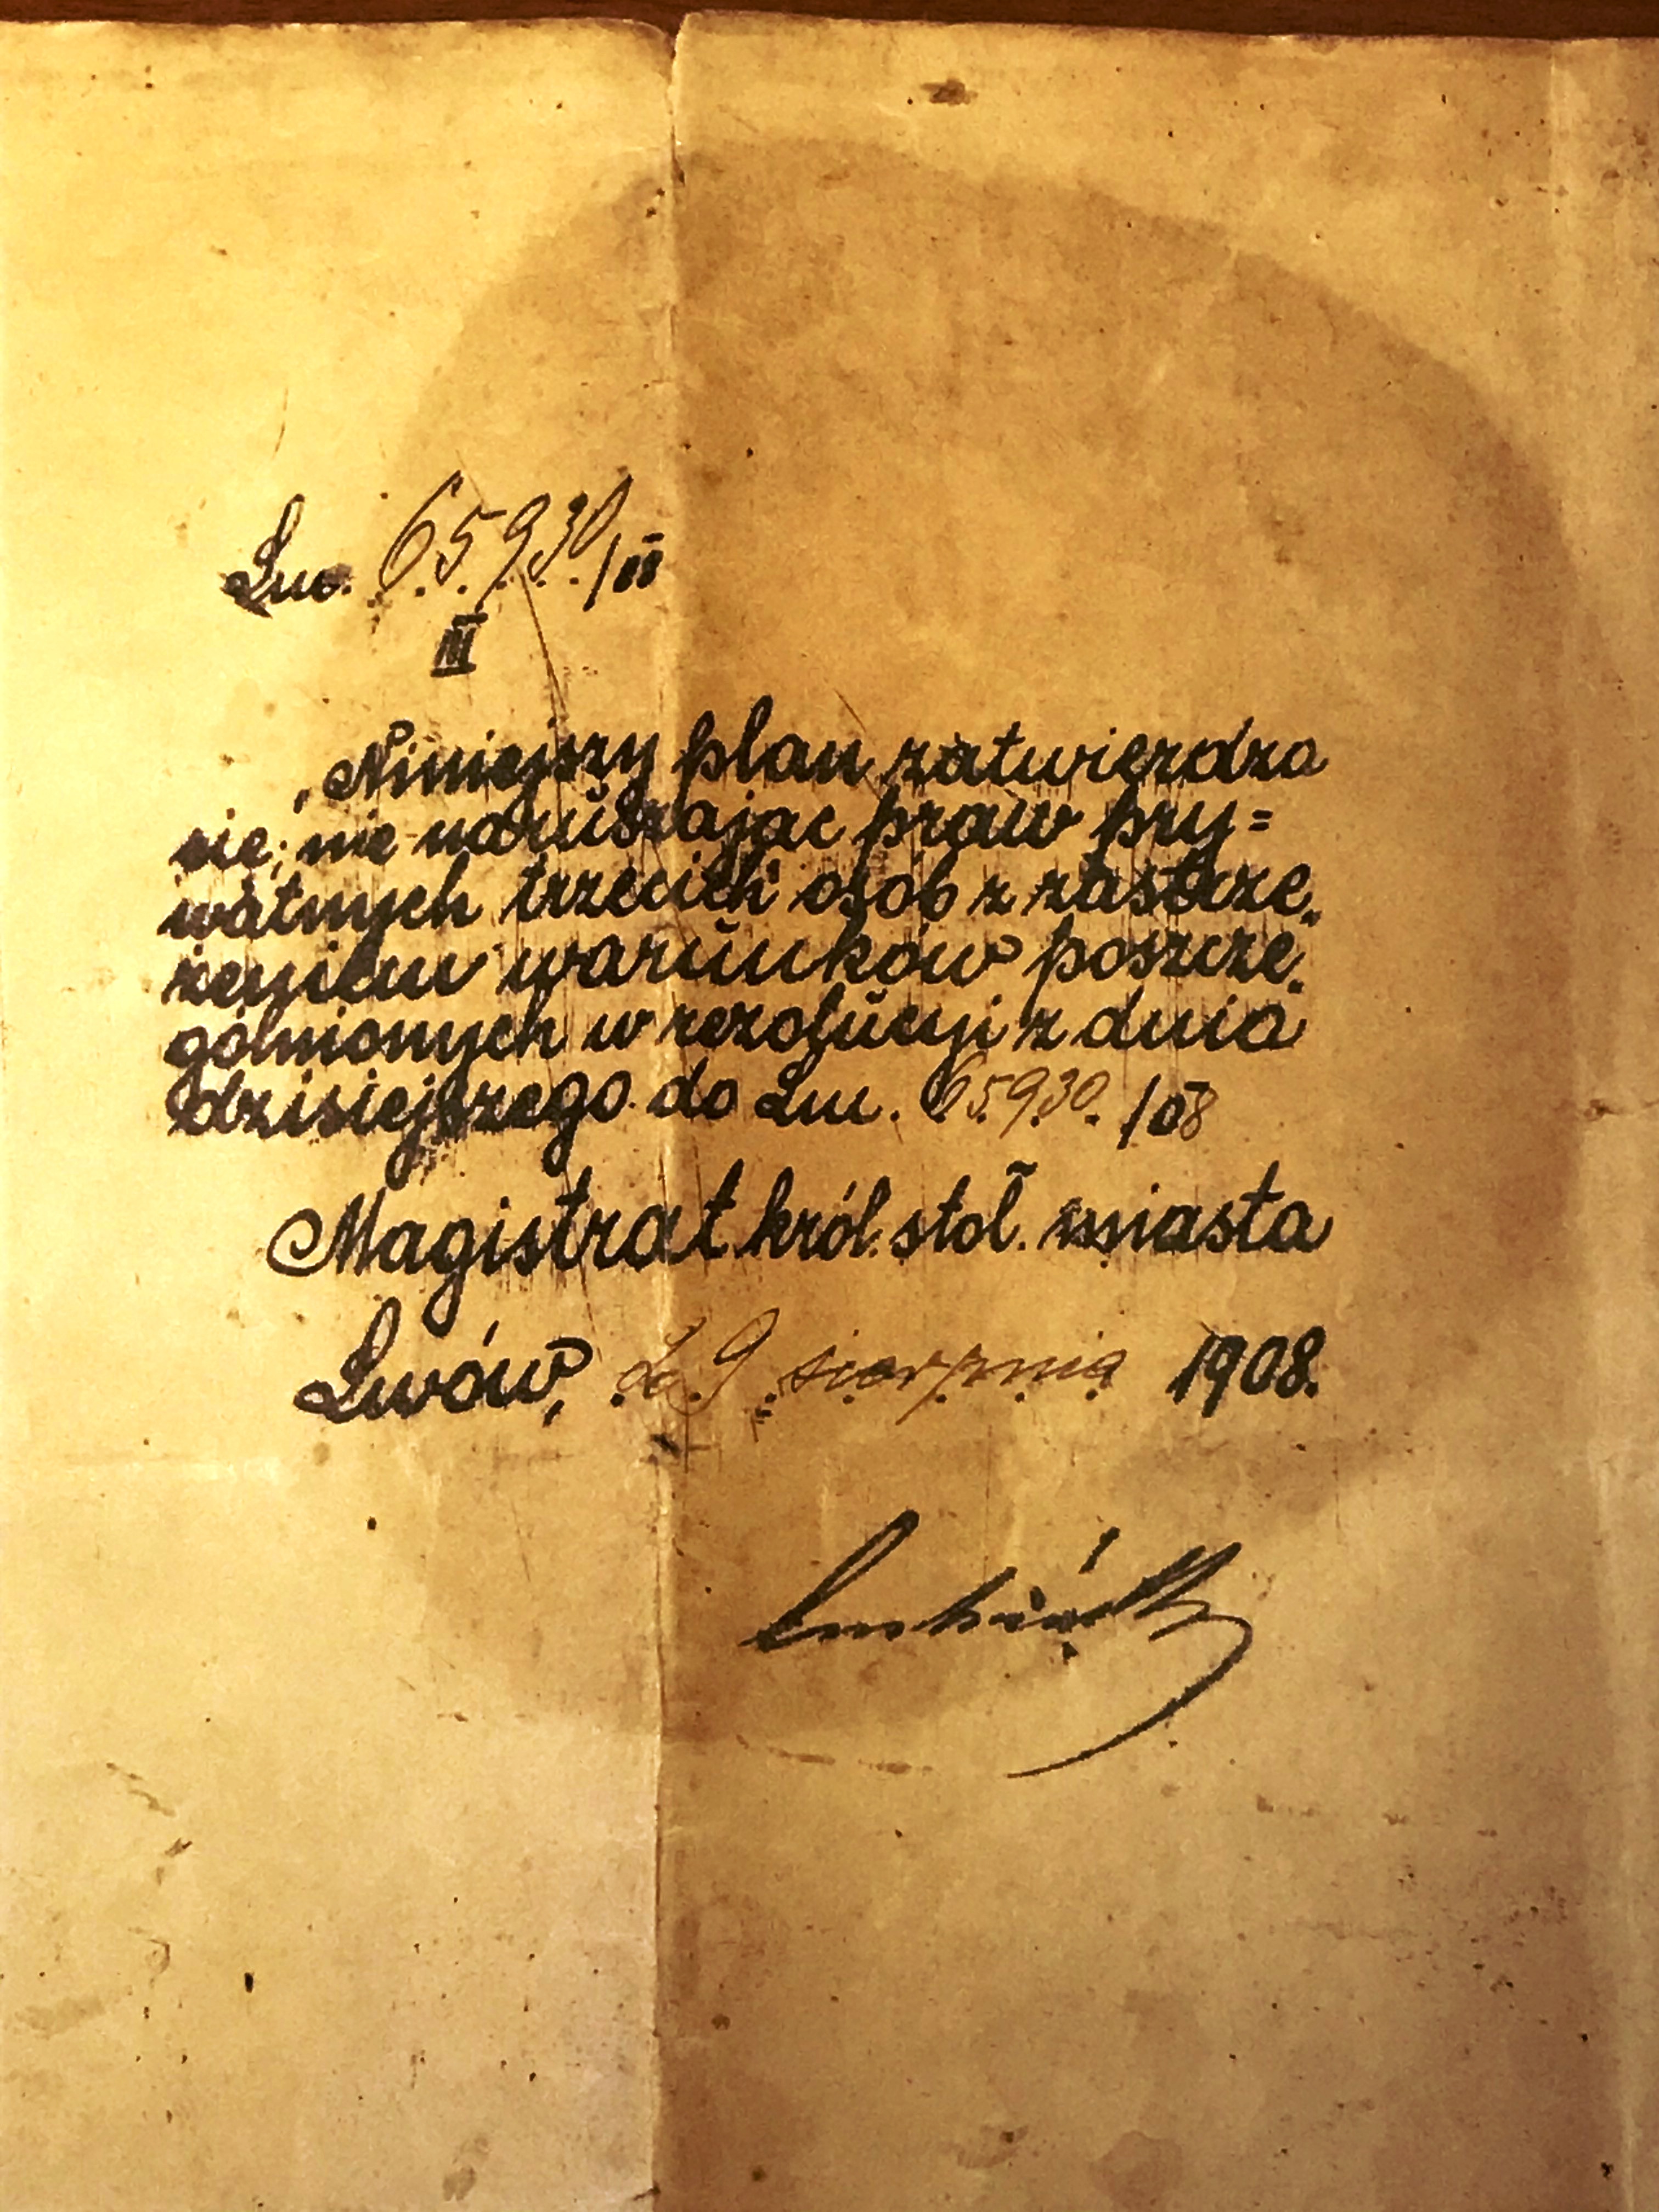 Lw. 65930/08
III
Niniejszy plan zatwierdza
się, nie naruszając praw pry=
watnych trzecich osób z zastrze„
żeniem warunków poszcze„
gólnionych w rezolucyi z dnia
dzisiejszego do Lw. 65930./08
Magistrat król. stoł. miasta
Lwów, d. 9 sierpnia 1908.